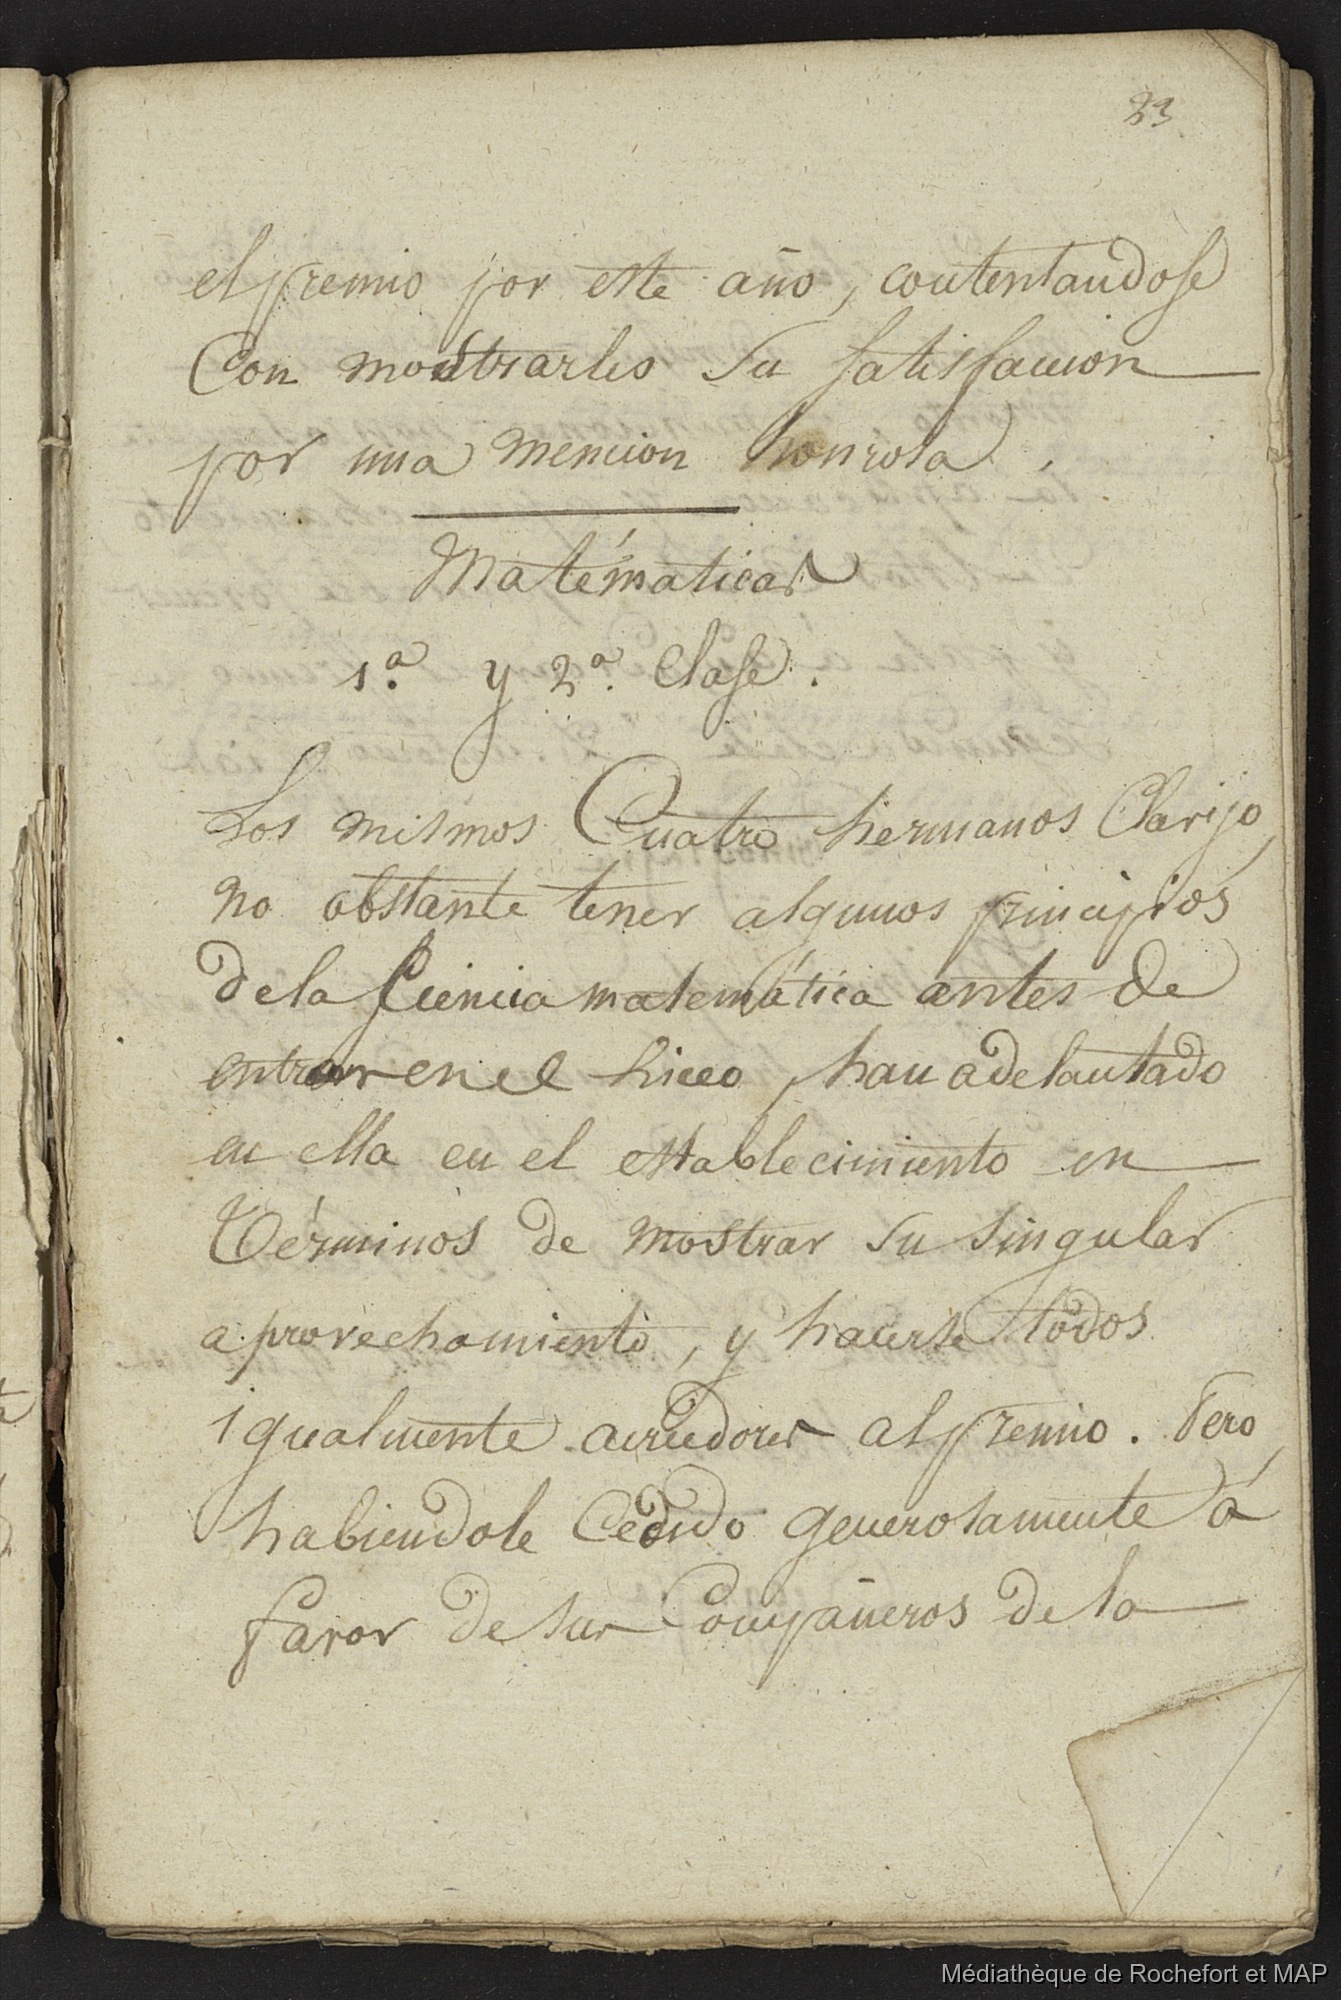 23
el premio por este año, contentandose
Con mostrarles su satisfaccion
por una mencion honrosa.
Matématicas
1.ª y 2.ª Clase.
Los mismos Cuatro hermanos Clavijo,
no obstante tener algunos principios
de la Ciencia matemática antes de
entrar en el liceo, han adelantado
en ella en el establecimiento en
términos de mostrar su singular
aprovechamiento, y hacerse todos
igualmente acrededores al premio. Pero,
habiendole Cedido generosamente á
favor de sus Compañeros de la
Médiathèque de Rochefort et MAP